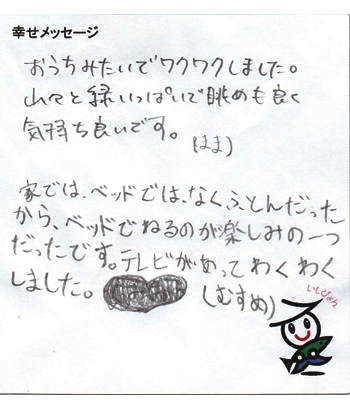 幸せメッセージ
おうちみたいでワクワクしました。
山々と緑いっぱいで眺めも良く
気持ち良いです。
(はは)
家では、ベッドでは、なく、ふとんだった
から、ベッドでねるのが楽しみの一つ
だったです。テレビがあってわくわく
しました。
(むすめ)
いしぴょん